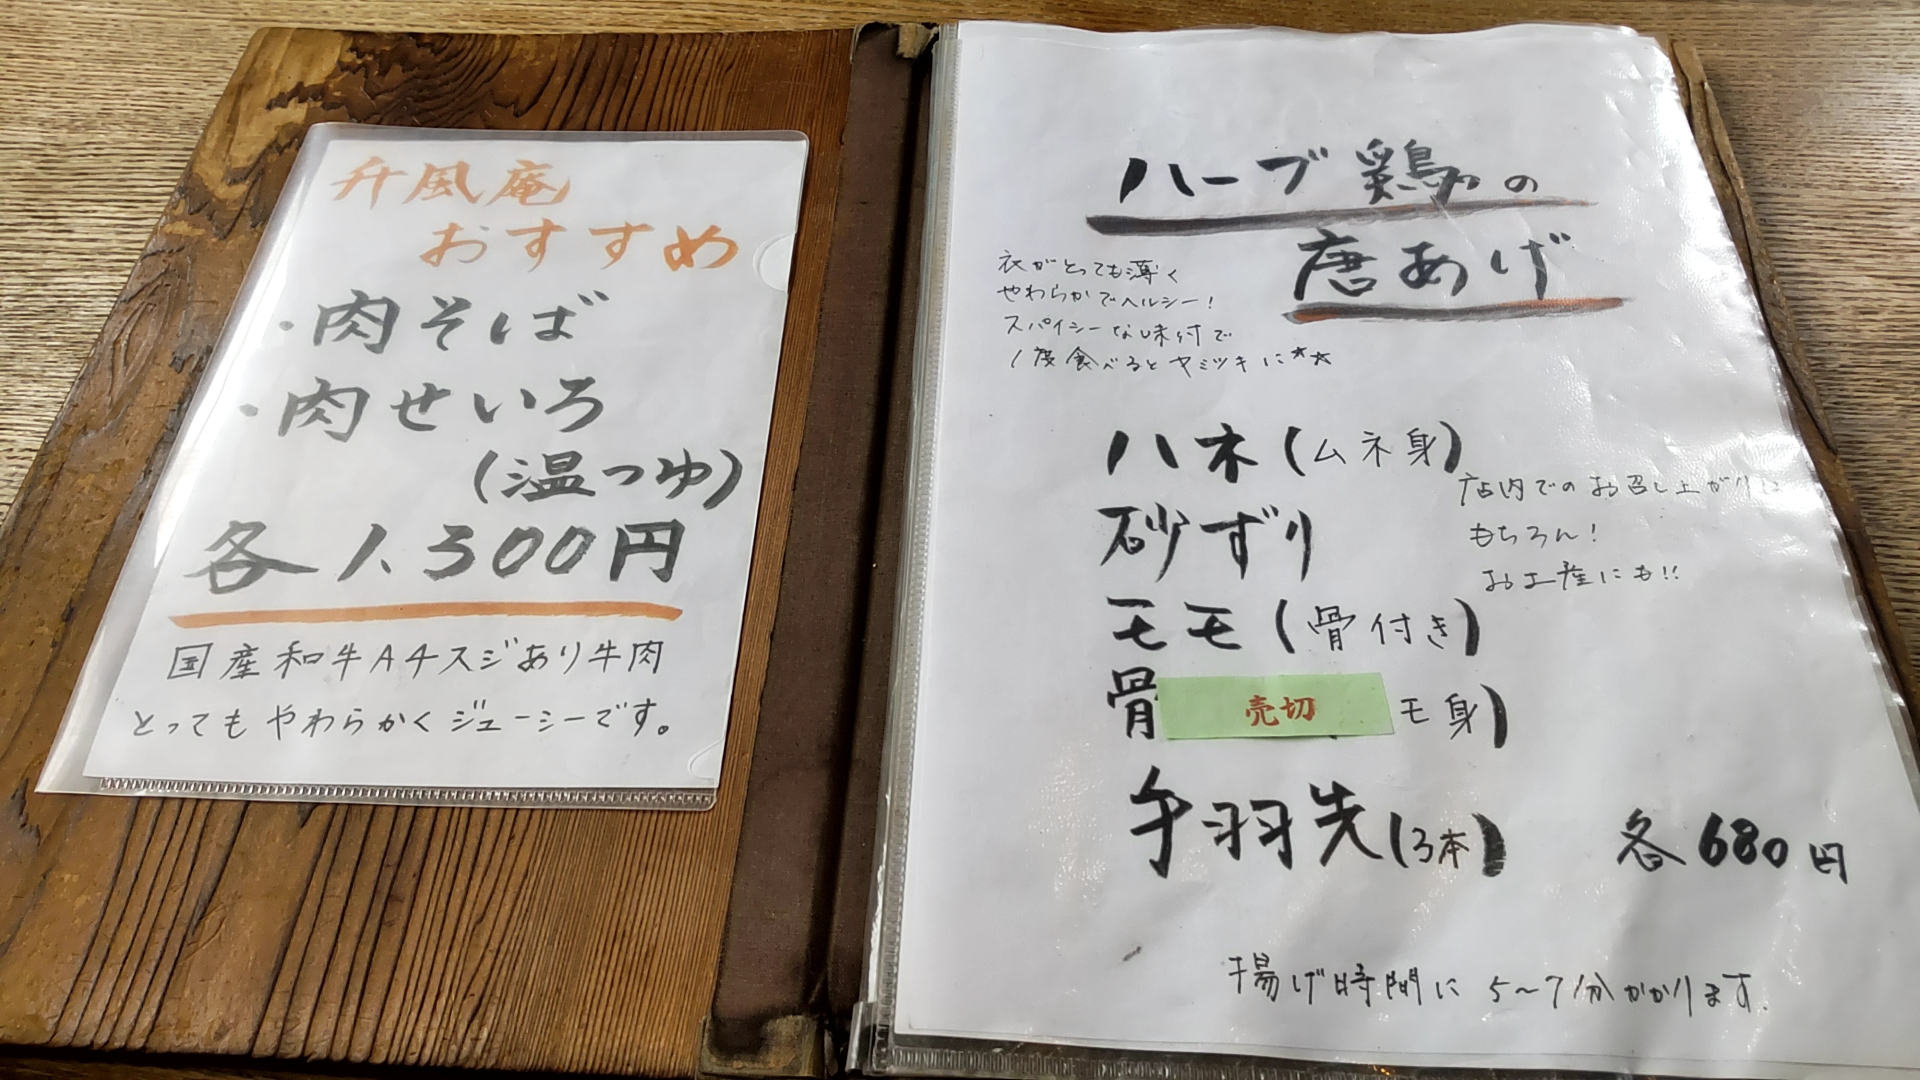 升風庵
おすすめ
・肉そば
・肉せいろ
(温つゆ)
各1,300円
国産和牛A4スジあり牛肉
とってもやわらかくジューシーです。
ハーブ鶏の
唐あげ
衣がとっても薄く
やわらかでヘルシー!
スパイシーな味付で
1度食べるとヤミツキに☆☆
ハネ(ムネ身)
砂ずり
モモ(骨付き)
骨 売切 モ身)
手羽先(3本)
各680円
店内でのお召し上がりは
もちろん!
お土産にも!!
揚げ時間に5〜7分かかります。